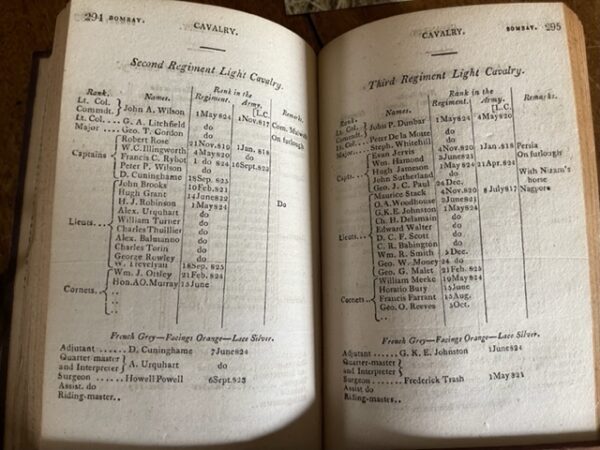 294 BOMBAY. CAVALRY.
Second Regiment Light Cavalry.
Rank in the
Rank. Names. Regiment. Army. Remarks.
[L.C.
Lt. Col. Commdt. } John A. Wilson 1 May 824 1 Nov. 817
Lt. Col. .... G. A. Litchfield do
Major .... Geo. T. Gordon do On furlough
Robert Rose 21 Nov. 819 1 Jan. 818
W.C. Illingworth 4 May 820
Captains Francis C. Rybot 1 do 824 16 Sept. 823
Peter P. Wilson do
D. Cuninghame 18 Sep. 823
John Brooks 10 Feb. 821
Hugh Grant 14 June 822
H. J. Robinson 1 May 824 Do
Alex. Urquhart do
Lieuts. William Turner do
Charles Thuillier do
Alex. Balmanno do
Charles Torin do
George Rowley do
W. Trevelyan 18 Sep. 825
Cornets. Wm. J. Ottley 21 Feb. 824
Hon. AO. Murray 15 June
French Grey—Facings Orange—Lace Silver.
Adjutant ...... D. Cuninghame 7 June 824
Quarter-master and Interpreter } A. Urquhart do
Surgeon ...... Howell Powell 6 Sept. 825
Assist. do
Riding-master..
CAVALRY. BOMBAY. 295
Third Regiment Light Cavalry.
Rank in the
Rank. Names. Regiment. Army. Remarks.
[L.C.
Lt. Col. Commdt. } John P. Dunbar 1 May 824 4 May 820
Lt. Col. Peter De la Motte do
Major Steph. Whitehill do
Evan Jervis 4 Nov. 820 1 Jan. 818 Persia
Wm. Harmond 3 June 821 On furlough
Capts. Hugh Jameson 1 May 824 21 Apr. 824
John Sutherland do With Nizam's horse
Geo. J. C. Paul 24 Dec.
Maurice Stack 4 Nov. 820 8 July 817 Nagpore
O. A. Woodhouse 3 June 821
G.K.E. Johnston 1 May 824
Ch. H. Delamain do
Edward Walter do
Lieuts. D. C. F. Scott do
C. R. Babington do
Wm. R. Smith 5 Dec.
Geo. W. Money 24 do
Geo. G. Malet 21 Feb. 825
William Meeke 19 May 824
Horatio Bury 15 June
Cornets Francis Farrant 15 Aug.
Geo. O. Reeves 5 Oct.
French Grey—Facings Orange—Lace Silver.
Adjutant .... G. K. E. Johnston 1 June 824
Quarter-master and Interpreter }
Surgeon ...... Frederick Trash 1 May 821
Assist do
Riding-master..